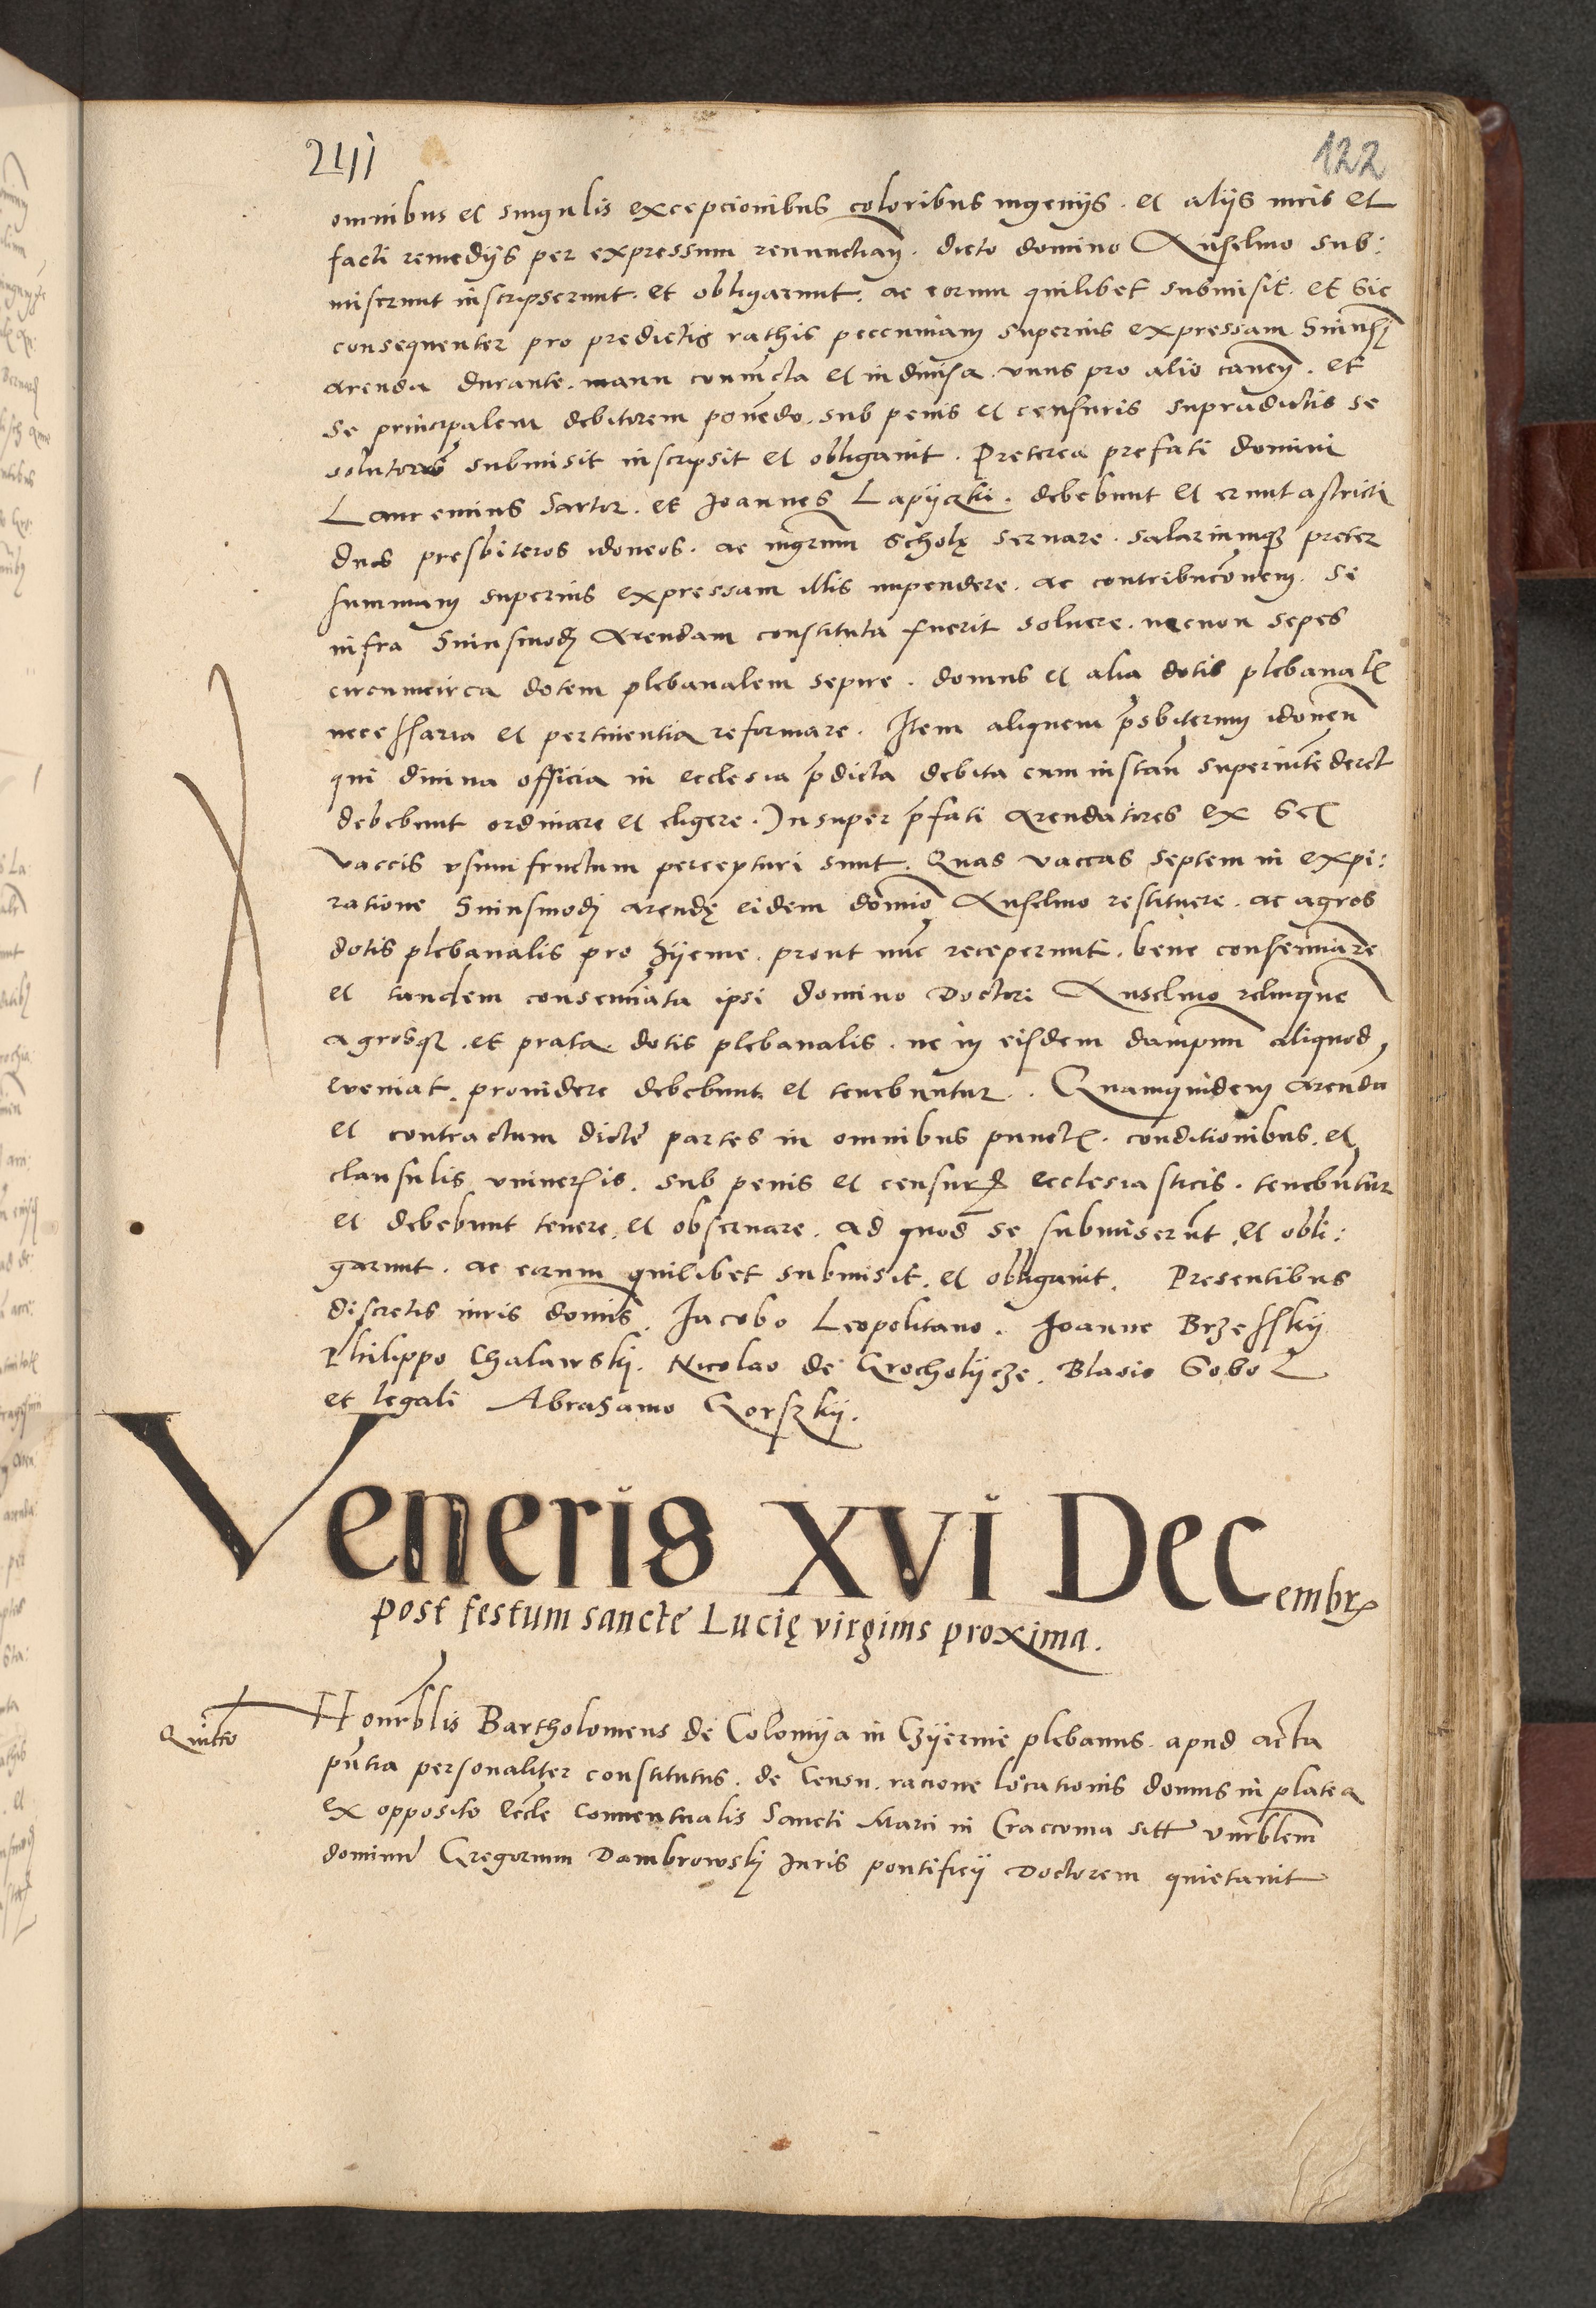 122
omnibus et singulis excepcionibus coloribus ingenijs. et alijs iuris et
facti remedijs per expressum renunctian. dicto domino Anselmo sub:
miserunt inscripserunt. et obligarunt. ac eorum quilibet submisit. et sic
consequenter pro predictis rathis pecuniam superius expressam huiusmodi
arenda durante. manu coniuncta et indiuisa. vnus pro alio cauen. et
se principalem debitorem ponendo. sub penis et censuris supradictis se
soluturum submisit inscripsit et obligauit. Preterea prefati domini
Laurentius Sartor. et Joannes Lapijczki. debebunt et erunt astricti
duos presbiteros idoneos. ac mgrum scholę seruare. salariumque preter
summam superius expressam illis impendere. ac contribuconem. se
infra huiusmodi Arendam constituta fuerit soluere. necnon sepes
circumcirca dotem plebanalem sepire. domus et alia dotis plebanal
necessaria et pertinentia reformare. Item aliquem presbiterum idoneu
qui diuina officia in ecclesia predicta debita cum instan superintenderet
debebunt ordinare et eligere. Insuper prefati Arendatores ex
vaccis vsumfructum percepturi sunt. Quas vaccas septem in expi:
ratione huiusmodi arendę eidem domino Anselmo restituere. ac agros
dotis plebanalis pro hijeme. prout nunc receperunt. bene conseminare
et tandem conseminata ipsi domino Doctori Anselmo relinquere
agrosque. et prata. dotis plebanalis. ne in eisdem dampnum aliquod
eueniat. prouidere debebunt et tenebuntur. Quamquidem arenda
et contractum dicte partes in omnibus punct. conditionibus. et
clausulis vniuersis. sub penis et censuris ecclesiasticis. tenebuntur
et debebunt tenere. et obseruare. ad quod se submiserunt. et obli:
garunt. ac eorum quilibet submisit. et obligauit. Presentibus
discretis viris dominis. Jacobo Leopolitano. Joanne Brzesskij
Philippo Chalawskj. Nicolao de Grocholijcze. Blasio Gobol
et legali Abrahamo Gorskij.
Veneris XVI Decembris
post festum sancte Lucię virginis proxima.
Quitto
Honorablis Bartholomeus de Colomija in Czijernie plebanus. apud acta
pntia personaliter constitutus. de censu. racione locationis domus in platea
ex opposito eccle conuentualis Sancti Marci in Craccouia sitt venerablem
dominum Gregorium Dambrowskj Juris pontificij Doctorem quietauit